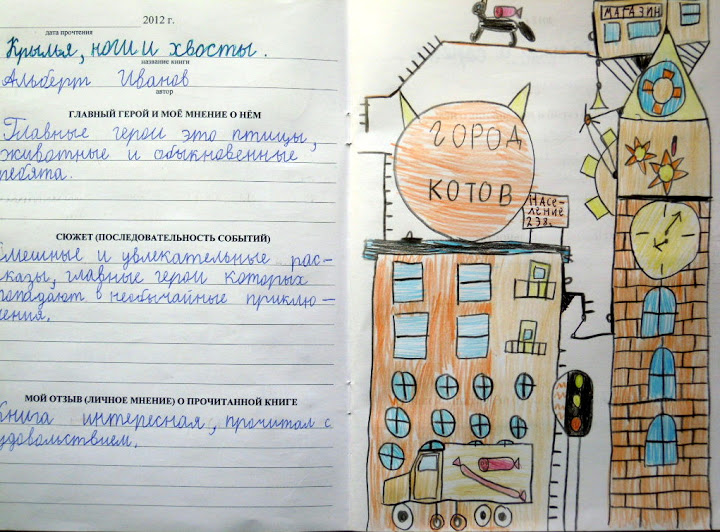 2012 г.
дата прочтения
Крылья, ноги и хвосты.
название книги
Альберт Иванов
автор
ГЛАВНЫЙ ГЕРОЙ И МОЁ МНЕНИЕ О НЁМ
Главные герои это птицы,
животные и обыкновенные
ребята.
СЮЖЕТ (ПОСЛЕДОВАТЕЛЬНОСТЬ СОБЫТИЙ)
Смешные и увлекательные рас-
сказы, главные герои которых
попадают в необычайные приклю-
чения.
МОЙ ОТЗЫВ (ЛИЧНОЕ МНЕНИЕ) О ПРОЧИТАННОЙ КНИГЕ
Книга интересная, прочитал с
удовольствием.
МАГАЗИН
ГОРОД
КОТОВ
НАСЕ-
ЛЕНИЕ
238.